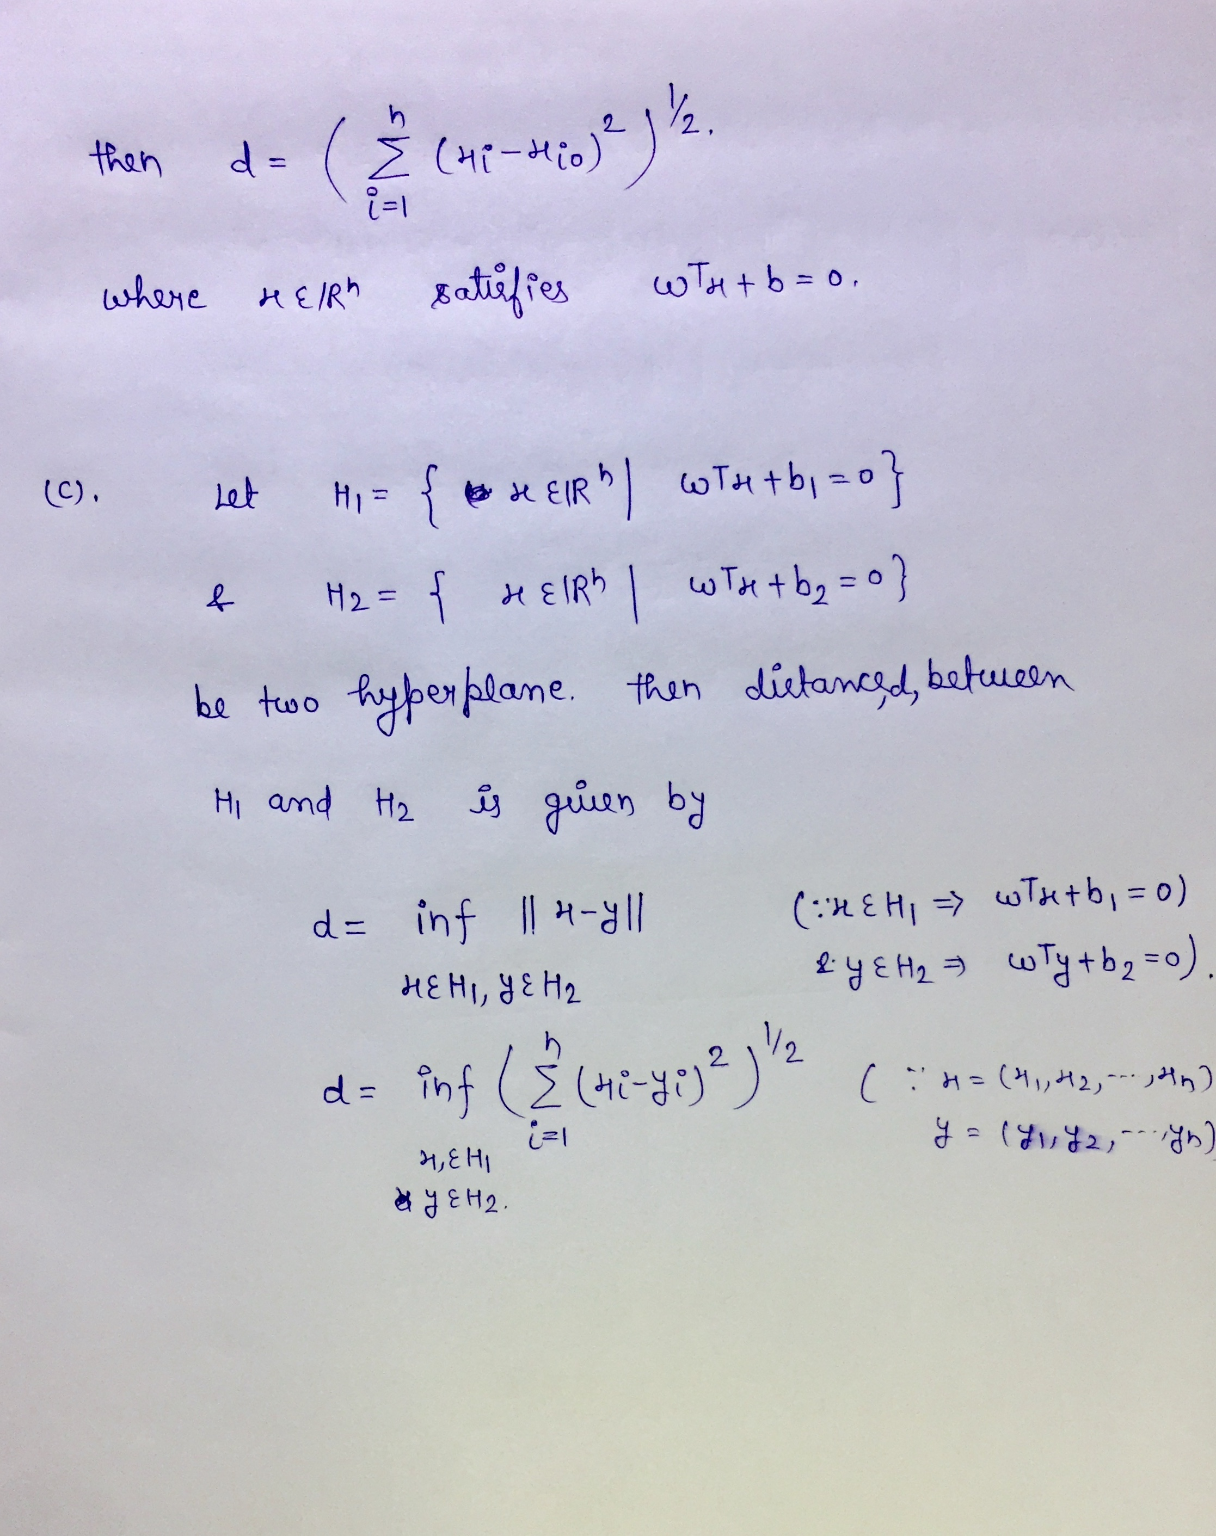 then d = ( Σ_{i=1}^{n} (xi - xio)² )^{1/2}.
where x ∈ ℝⁿ satisfies ωᵀx + b = 0.
(C). Let H₁ = { x ∈ ℝⁿ | ωᵀx + b₁ = 0 }
& H₂ = { x ∈ ℝⁿ | ωᵀx + b₂ = 0 }
be two hyperplane. then distance, d, between
H₁ and H₂ is given by
d = inf || x - y || (∵ x ∈ H₁ ⇒ ωᵀx + b₁ = 0)
x ∈ H₁, y ∈ H₂ & y ∈ H₂ ⇒ ωᵀy + b₂ = 0).
d = inf ( Σ_{i=1}^{n} (xi - yi)² )^{1/2} ( ∵ x = (x₁, x₂, ---, xn)
x, ∈ H₁ y = (y₁, y₂, ---, yn)
y ∈ H₂.